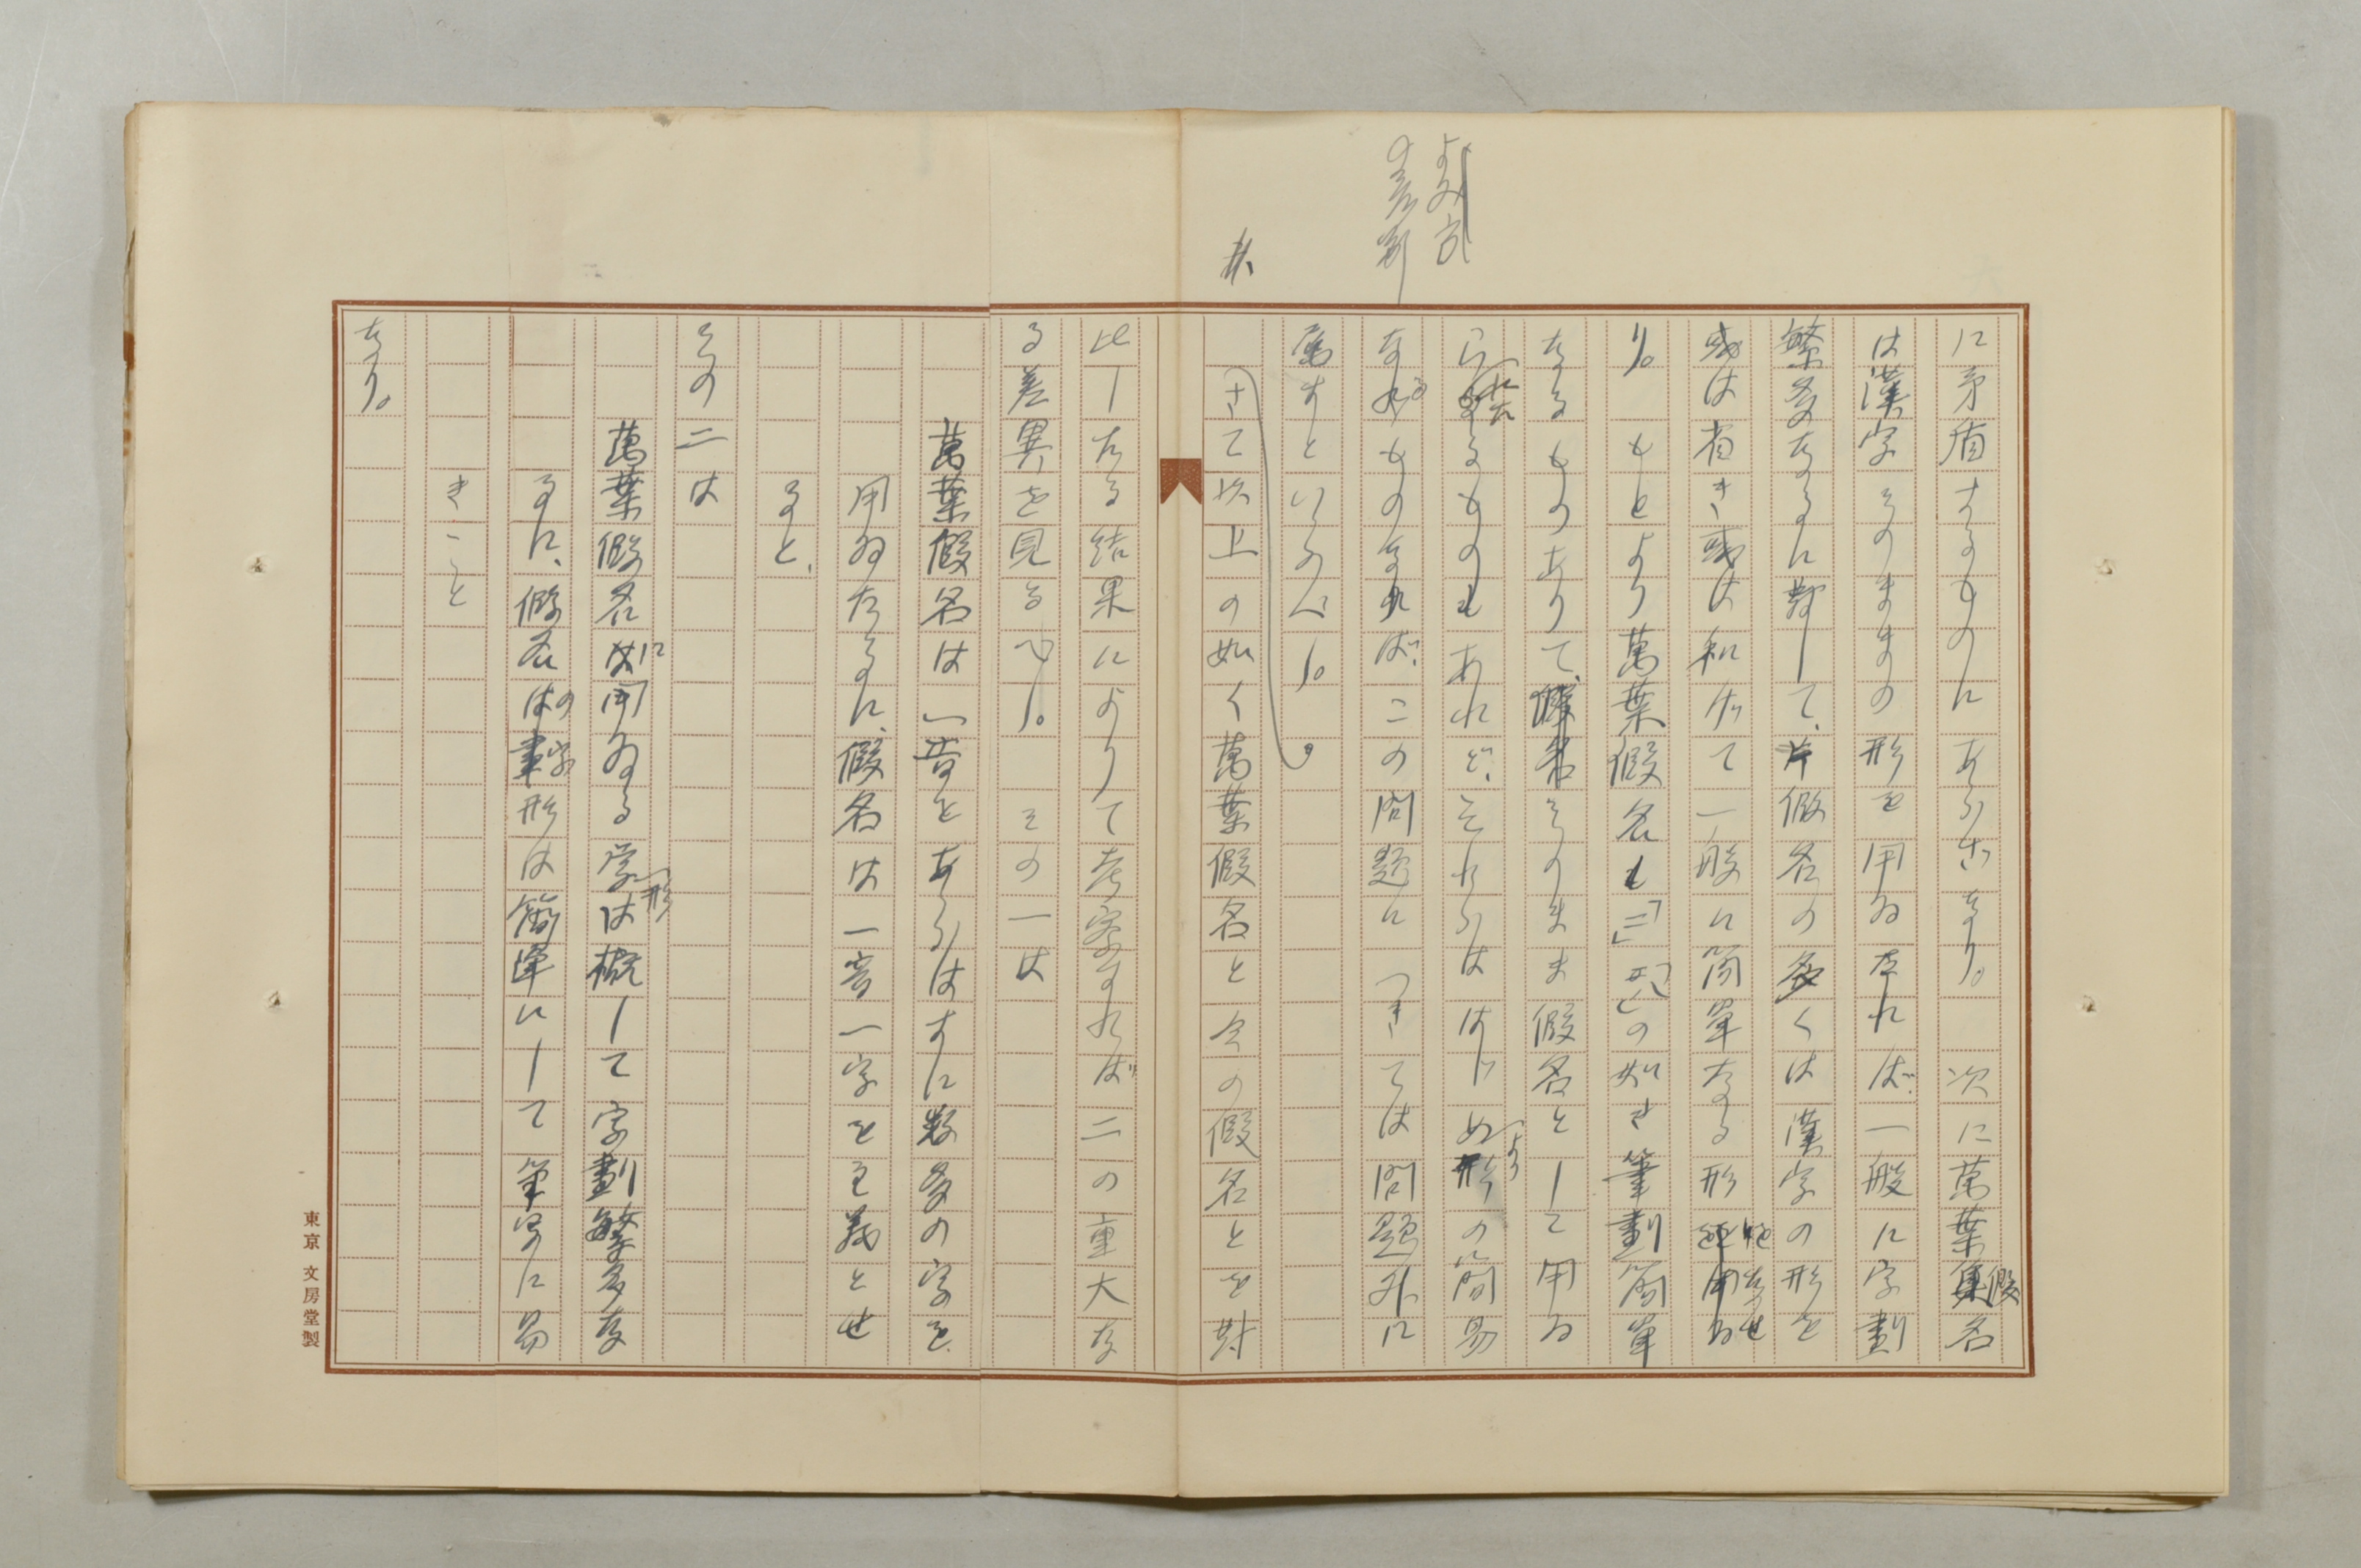 に矛盾するものにあらざるなり。次に萬葉假名
は漢字そのままの形を用ゐたれば、一般に字劃
繁多なるに對して、片假名の多くは漢字の形を
或は省き或は和げて一般に簡單なる形
り。もとより萬葉假名も「三」「二」の如き筆劃簡單
なるものありて、そのまま假名として用ゐ
らるるものもあれど、それらははじめより形の簡易
なるものなれば、この問題につきては問題外に
属すといふべし。
さて以上の如く萬葉假名と今の假名とを對
比したる結果によりて考察すれば二の重大な
る差異を見るべし。その一は
萬葉假名は一音をあらはすに数多の字を
用ゐたるに、假名は一音一字を主義とせ
ると、
その二は
萬葉假名に用ゐる字形は概して字劃繁多な
るに、假名の字形は簡單にして筆写に易
きこと
なり。
の差別
東京 文房堂製